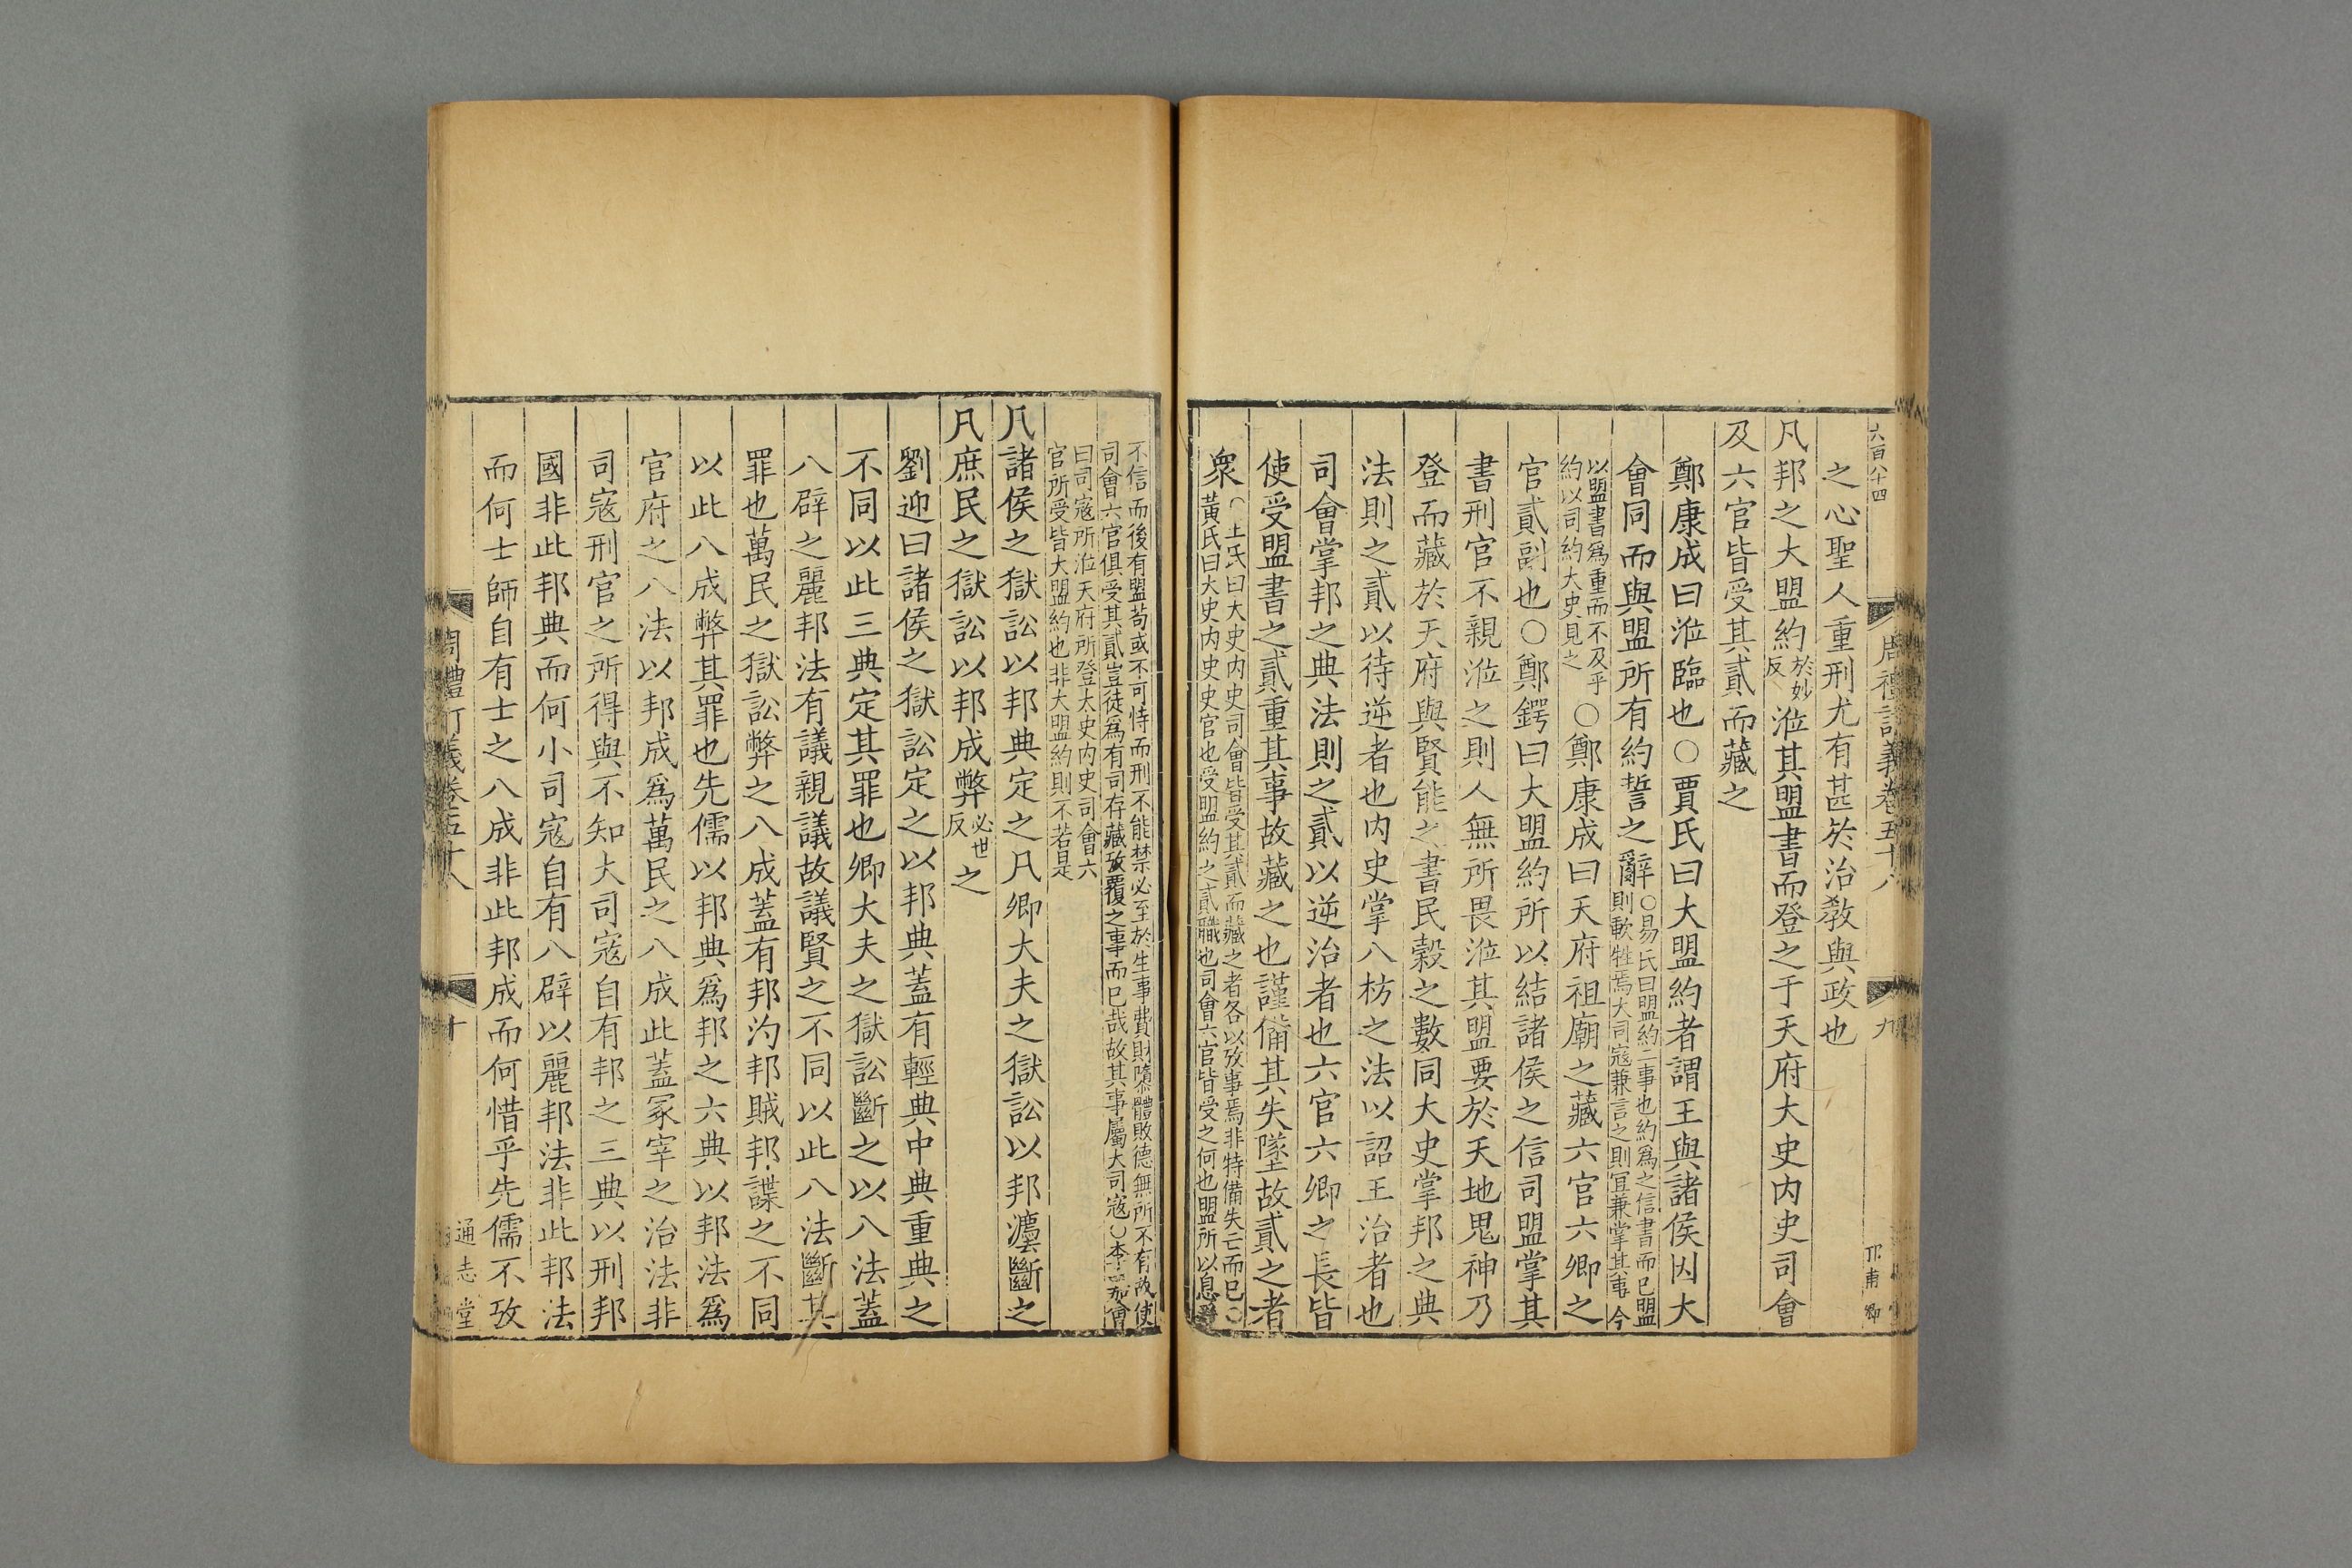 六百八十四
周禮訂義卷五十八
九
之心聖人重刑尤有甚於治敎與政也
凡邦之大盟約於妙反涖其盟書而登之于天府大史内史司會
及六官皆受其貳而藏之
鄭康成曰涖臨也○賈氏曰大盟約者謂王與諸侯因大
會同而與盟所有約誓之辭○易氏曰盟約二事也約爲之信書而已盟
則歃牲焉大司寇兼言之則宜兼掌其事今
以盟書爲重而不及乎
約以司約大史見之
○鄭康成曰天府祖廟之藏六官六卿之
官貳副也○鄭鍔曰大盟約所以結諸侯之信司盟掌其
書刑官不親涖之則人無所畏涖其盟要於天地鬼神乃
登而藏於天府與賢能之書民榖之數同大史掌邦之典
法則之貳以待逆者也内史掌八枋之法以詔王治者也
司會掌邦之典法則之貳以逆治者也六官六卿之長皆
使受盟書之貳重其事故藏之也謹備其失墜故貳之者
衆
○王氏曰大史内史司會皆受其貳而藏之者各以攷事焉非特備失亡而已○
黃氏曰大史内史史官也受盟約之貳職也司會六官皆受之何也盟所以息爭
不信而後有盟苟或不可恃而刑不能禁必至於生事費財隳體敗德無所不有故使
司會六官俱受其貳豈徒爲有司存藏攷覆之事而已哉故其事屬大司寇○李嘉會
曰司寇所涖天府所登太史内史司會六
官所受皆大盟約也非大盟約則不若是
凡諸侯之獄訟以邦典定之凡卿大夫之獄訟以邦灋斷之
凡庶民之獄訟以邦成弊必世反之
劉迎曰諸侯之獄訟定之以邦典蓋有輕典中典重典之
不同以此三典定其罪也卿大夫之獄訟斷之以八法蓋
八辟之麗邦法有議親議故議賢之不同以此八法斷其
罪也萬民之獄訟弊之八成蓋有邦汋邦賊邦諜之不同
以此八成弊其罪也先儒以邦典爲邦之六典以邦法爲
官府之八法以邦成爲萬民之八成此蓋冢宰之治法非
司寇刑官之所得與不知大司寇自有邦之三典以刑邦
國非此邦典而何小司寇自有八辟以麗邦法非此邦法
而何士師自有士之八成非此邦成而何惜乎先儒不攷
周禮訂義卷五十八
十
通志堂